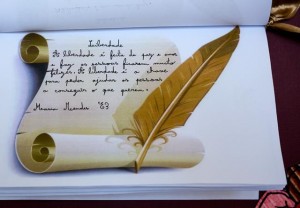 Liberdade
A liberdade é feita de paz e amor
e faz as pessoas ficarem muito
felizes. A liberdade é a chave
para poder ajudar as pessoas
a conseguir o que querem.
Mendes '83